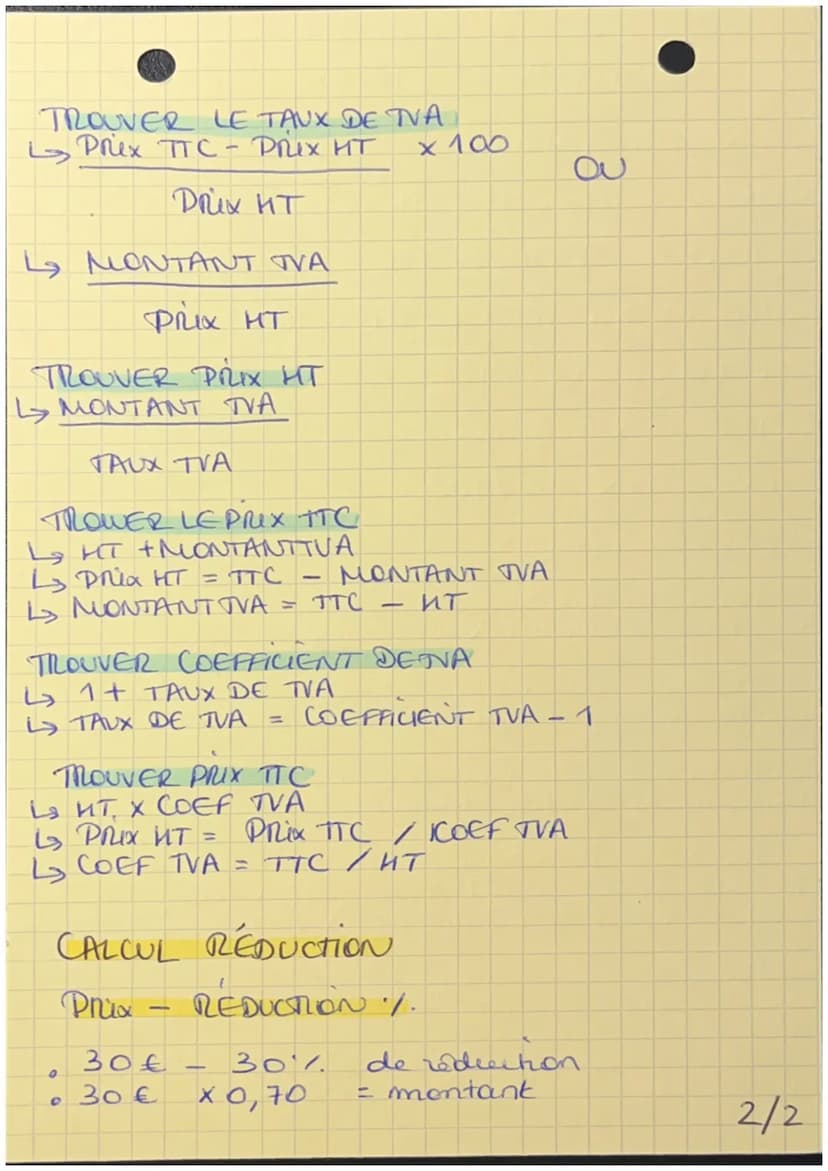 TROUVER LE TAUX DE TVA
↳ Prix TTC - Prix HT x 100
OU
Prix HT
↳ MONTANT TVA
Prix HT
TROUVER PRIX HT
↳ MONTANT TVA
TAUX TVA
TROUVER LE PRIX TTC
↳ HT + MONTANT TVA
↳ Prix HT = TTC - MONTANT TVA
↳ MONTANT TVA = TTC - HT
TROUVER COEFFICIENT DE TVA
↳ 1 + TAUX DE TVA
↳ TAUX DE TVA = COEFFICIENT TVA - 1
TROUVER PRIX TTC
↳ HT x COEF TVA
↳ PRIX HT = Prix TTC / COEF TVA
↳ COEF TVA = TTC / HT
CALCUL RÉDUCTION
Prix - RÉDUCTION %.
. 30 € - 30 % de réduction
. 30 € x 0,70 = montant
2/2